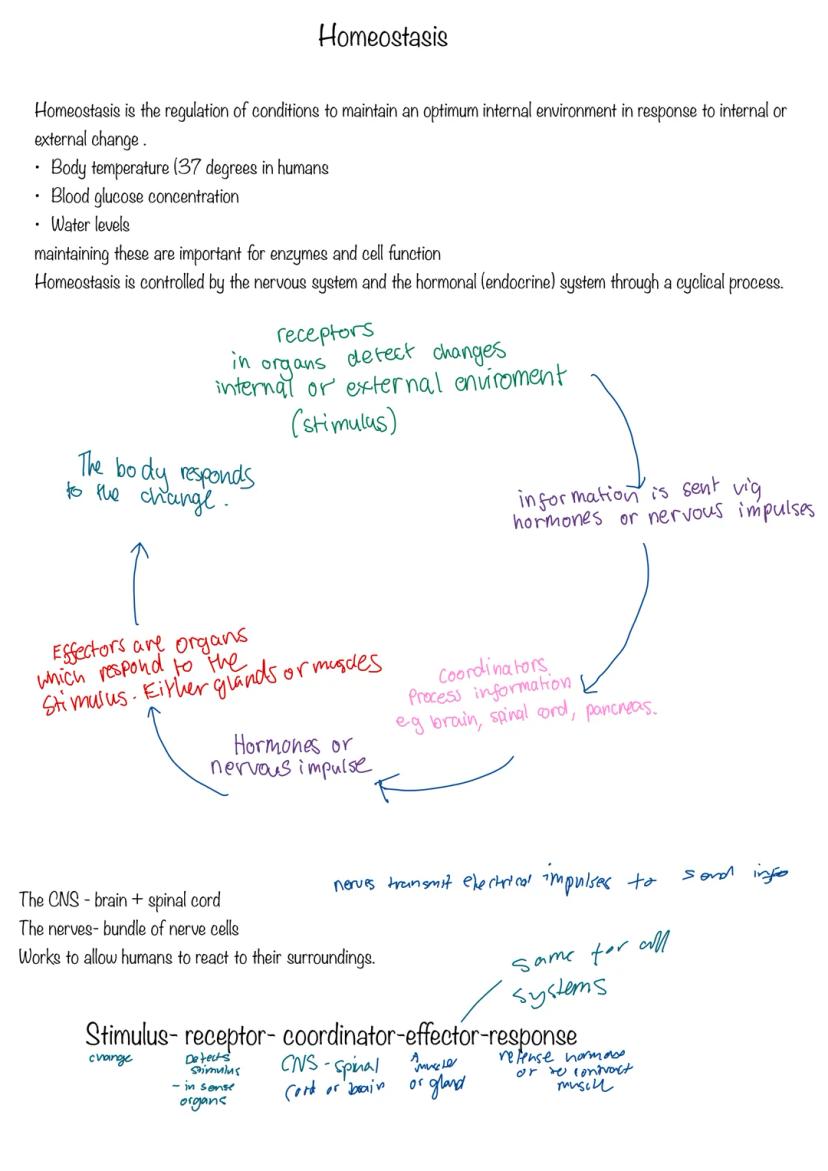 Homeostasis
Homeostasis is the regulation of conditions to maintain an optimum internal environment in response to internal or
external change .
• Body temperature (37 degrees in humans
• Blood glucose concentration
• Water levels
maintaining these are important for enzymes and cell function
Homeostasis is controlled by the nervous system and the hormonal (endocrine) system through a cyclical process.
receptors
in organs detect changes
internal or external enviroment
(stimulus)
The body responds
to the change.
information is sent via
hormones or nervous impulses
Effectors are organs
which respond to the
stimulus. Either glands or muscles
Coordinators
Process information
e.g brain, spinal cord, pancreas.
Hormones or
nervous impulse
nerves transmit electrical impulses to send info
The CNS - brain + spinal cord
The nerves- bundle of nerve cells
Works to allow humans to react to their surroundings.
same for all
systems
Stimulus- receptor- coordinator-effector-response
change
Detects
stimulus
- in sense
organs
CNS - spinal
cord or brain
A muscle
or gland
release hormone
or contract
muscle